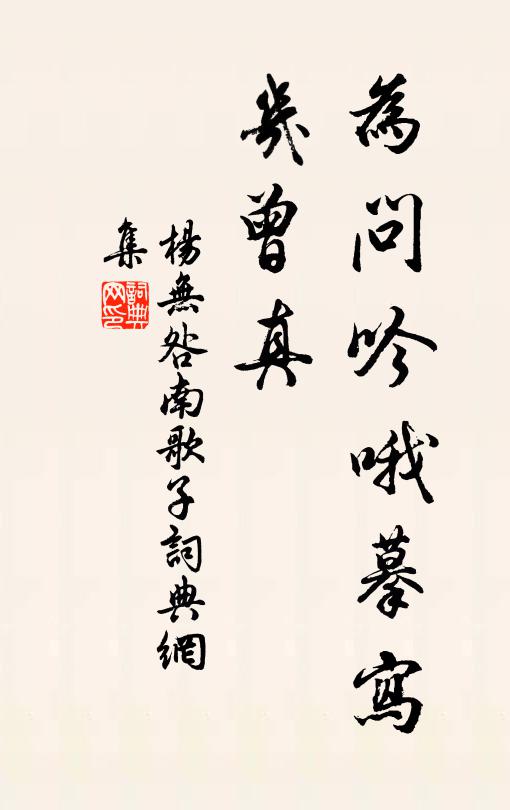 為問吟哦摹寫
幾曾真
楊無咎南歌子詞典網
集
詞典
网印